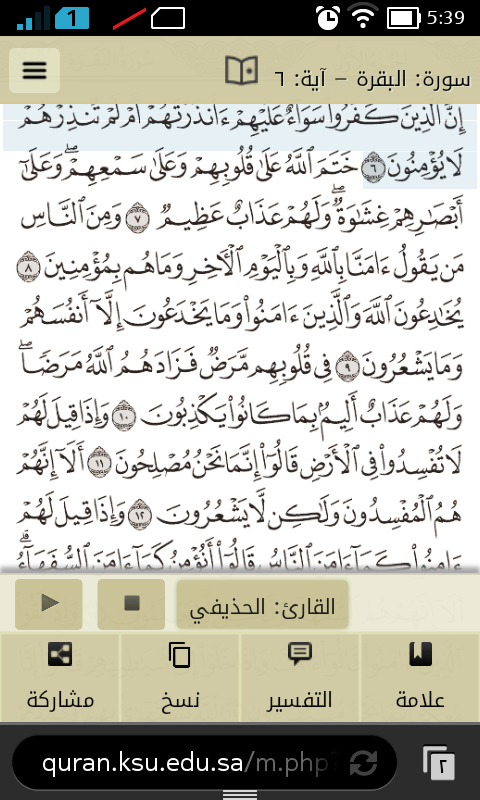 1 5:39
سورة: البقرة – آية: ٦
إِنَّ ٱلَّذِينَ كَفَرُوا۟ سَوَآءٌ عَلَيْهِمْ ءَأَنذَرْتَهُمْ أَمْ لَمْ تُنذِرْهُمْ
لَا يُؤْمِنُونَ ٦ خَتَمَ ٱللَّهُ عَلَىٰ قُلُوبِهِمْ وَعَلَىٰ سَمْعِهِمْ ۖ وَعَلَىٰٓ
أَبْصَـٰرِهِمْ غِشَـٰوَةٌ ۖ وَلَهُمْ عَذَابٌ عَظِيمٌ ٧ وَمِنَ ٱلنَّاسِ
مَن يَقُولُ ءَامَنَّا بِٱللَّهِ وَبِٱلْيَوْمِ ٱلْـَٔاخِرِ وَمَا هُم بِمُؤْمِنِينَ ٨
يُخَـٰدِعُونَ ٱللَّهَ وَٱلَّذِينَ ءَامَنُوا۟ وَمَا يَخْدَعُونَ إِلَّآ أَنفُسَهُمْ
وَمَا يَشْعُرُونَ ٩ فِى قُلُوبِهِم مَّرَضٌ فَزَادَهُمُ ٱللَّهُ مَرَضًا ۖ
وَلَهُمْ عَذَابٌ أَلِيمٌۢ بِمَا كَانُوا۟ يَكْذِبُونَ ١٠ وَإِذَا قِيلَ لَهُمْ
لَا تُفْسِدُوا۟ فِى ٱلْأَرْضِ قَالُوٓا۟ إِنَّمَا نَحْنُ مُصْلِحُونَ ١١ أَلَآ إِنَّهُمْ
هُمُ ٱلْمُفْسِدُونَ وَلَـٰكِن لَّا يَشْعُرُونَ ١٢ وَإِذَا قِيلَ لَهُمْ
ءَامِنُوا۟ كَمَآ ءَامَنَ ٱلنَّاسُ قَالُوٓا۟ أَنُؤْمِنُ كَمَآ ءَامَنَ ٱلسُّفَهَآءُ ۗ
القارئ: الحذيفي
علامة التفسير نسخ مشاركة
quran.ksu.edu.sa/m.php? ٢